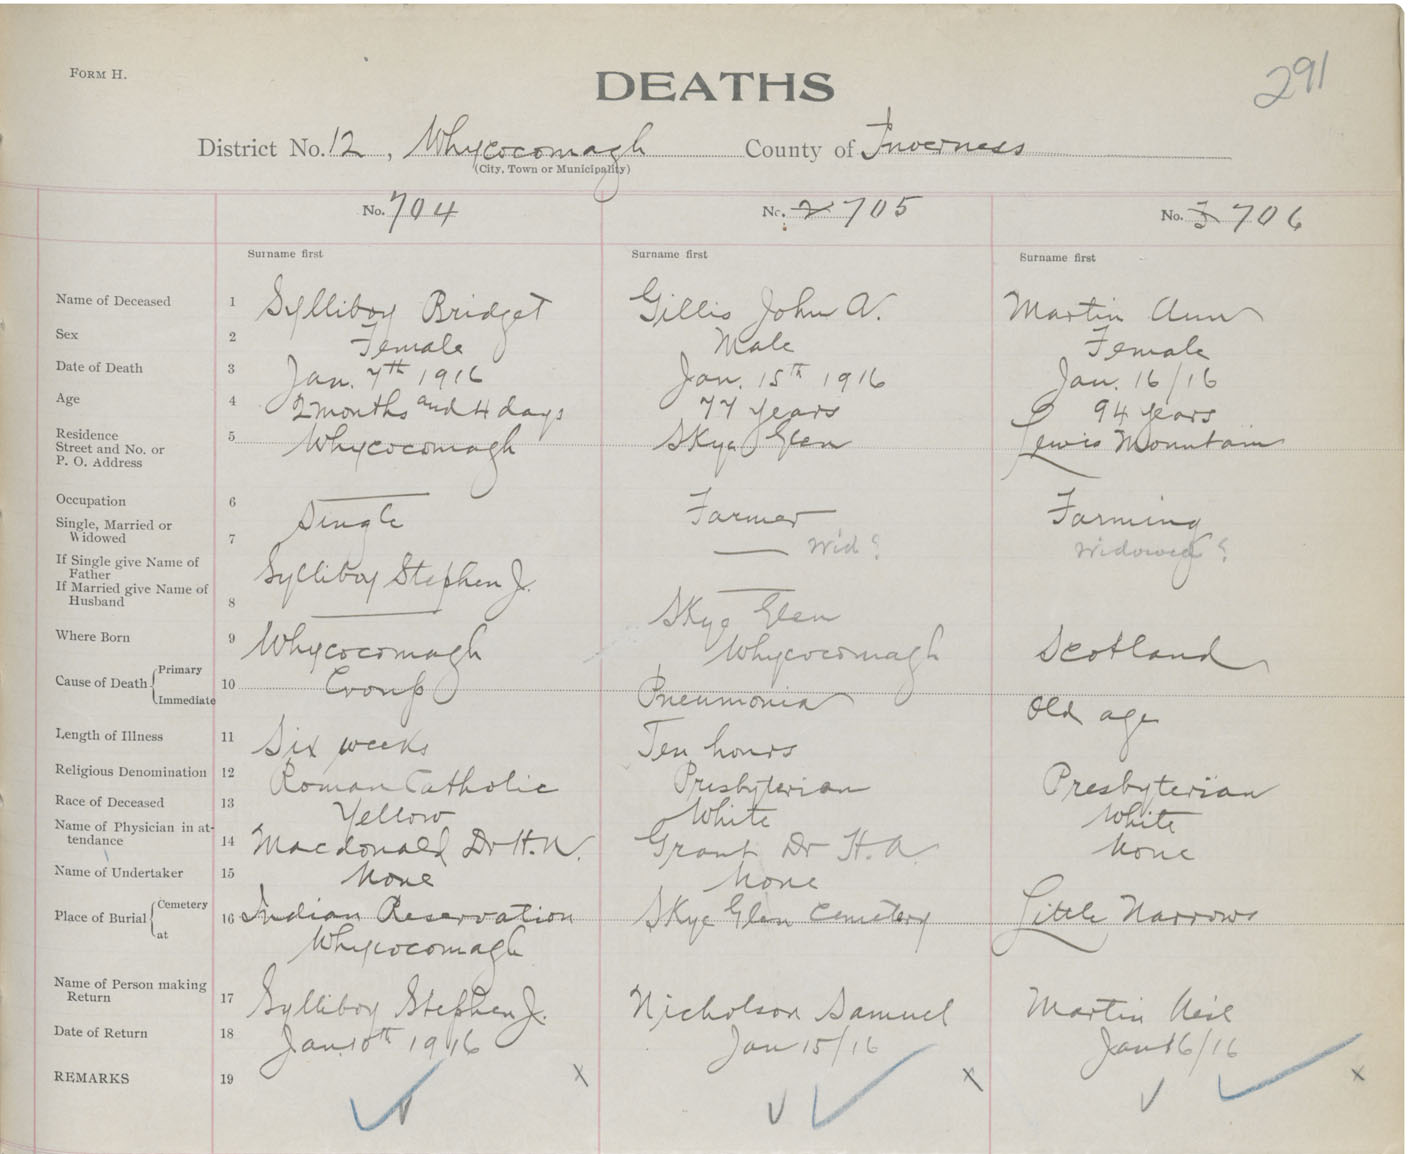 FORM H.
DEATHS
291
District No. 12, Whycocomagh County of Inverness
(City, Town or Municipality)
No. 704 No. 2 705 No. 3 706
Surname first Surname first Surname first
Name of Deceased 1 Sylliboy Bridget Gillis John A. Martin Ann
Sex 2 Female Male Female
Date of Death 3 Jan. 7th 1916 Jan. 15th 1916 Jan. 16/16
Age 4 2 months and 4 days 77 years 94 years
Residence Street and No. or P. O. Address 5 Whycocomagh Skye Glen Lewis Mountain
Occupation 6 Farmer Farming
Single, Married or Widowed 7 Single Wid? Widowed?
If Single give Name of Father Sylliboy Stephen J.
If Married give Name of Husband 8
Where Born 9 Whycocomagh Skye Glen Whycocomagh Scotland
Cause of Death Primary Immediate 10 Croup Pneumonia Old age
Length of Illness 11 Six weeks Ten hours
Religious Denomination 12 Roman Catholic Presbyterian Presbyterian
Race of Deceased 13 Yellow White White
Name of Physician in attendance 14 Macdonald Dr H.N. Grant Dr H.A. None
Name of Undertaker 15 None None
Place of Burial Cemetery at 16 Indian Reservation Whycocomagh Skye Glen Cemetery Little Narrows
Name of Person making Return 17 Sylliboy Stephen J. Nicholson Samuel Martin Neil
Date of Return 18 Jan. 10th 1916 Jan 15/16 Jan 16/16
REMARKS 19 x x x